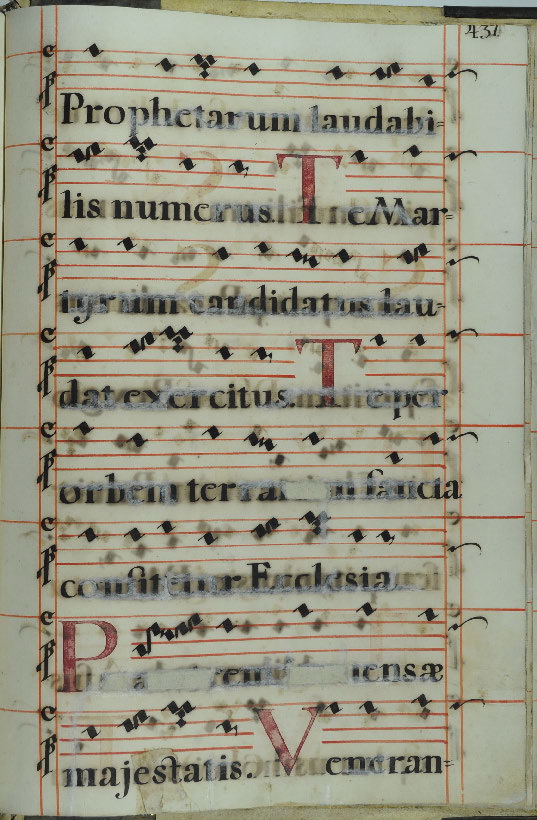 437
Prophetarum laudabi-
lis numerus. Te Mar-
tyrum candidatus lau-
dat exercitus. Te per
orbem terrarum sancta
confitetur Ecclesia.
P ensæ
majestatis. Veneran-